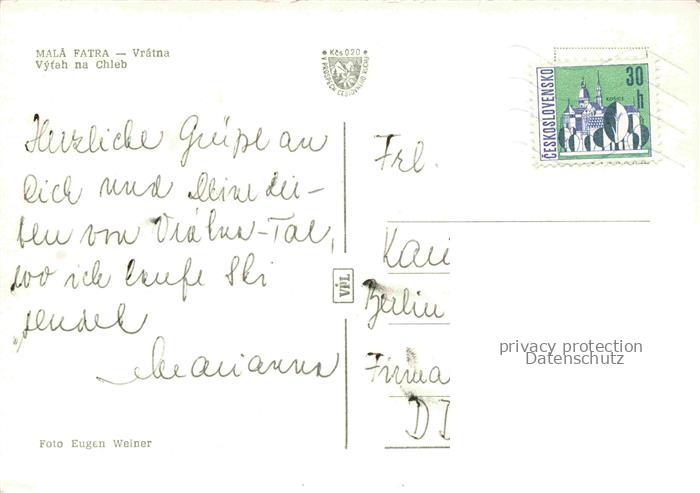 MALÁ FATRA — Vrátna
Výťah na Chleb
Kčs 0.20
V PROSPECH CESTOVNÉHO RUCHU
ČESKOSLOVENSKO
30 h
KOŠICE
Herzliche Grüße an
Dich und Deine Lie-
ben von Vrátna-Tal,
wo ich laufe Ski
sendet
Marianna
Frl.
Berlin
Firma
privacy protection
Datenschutz
Foto Eugen Weiner